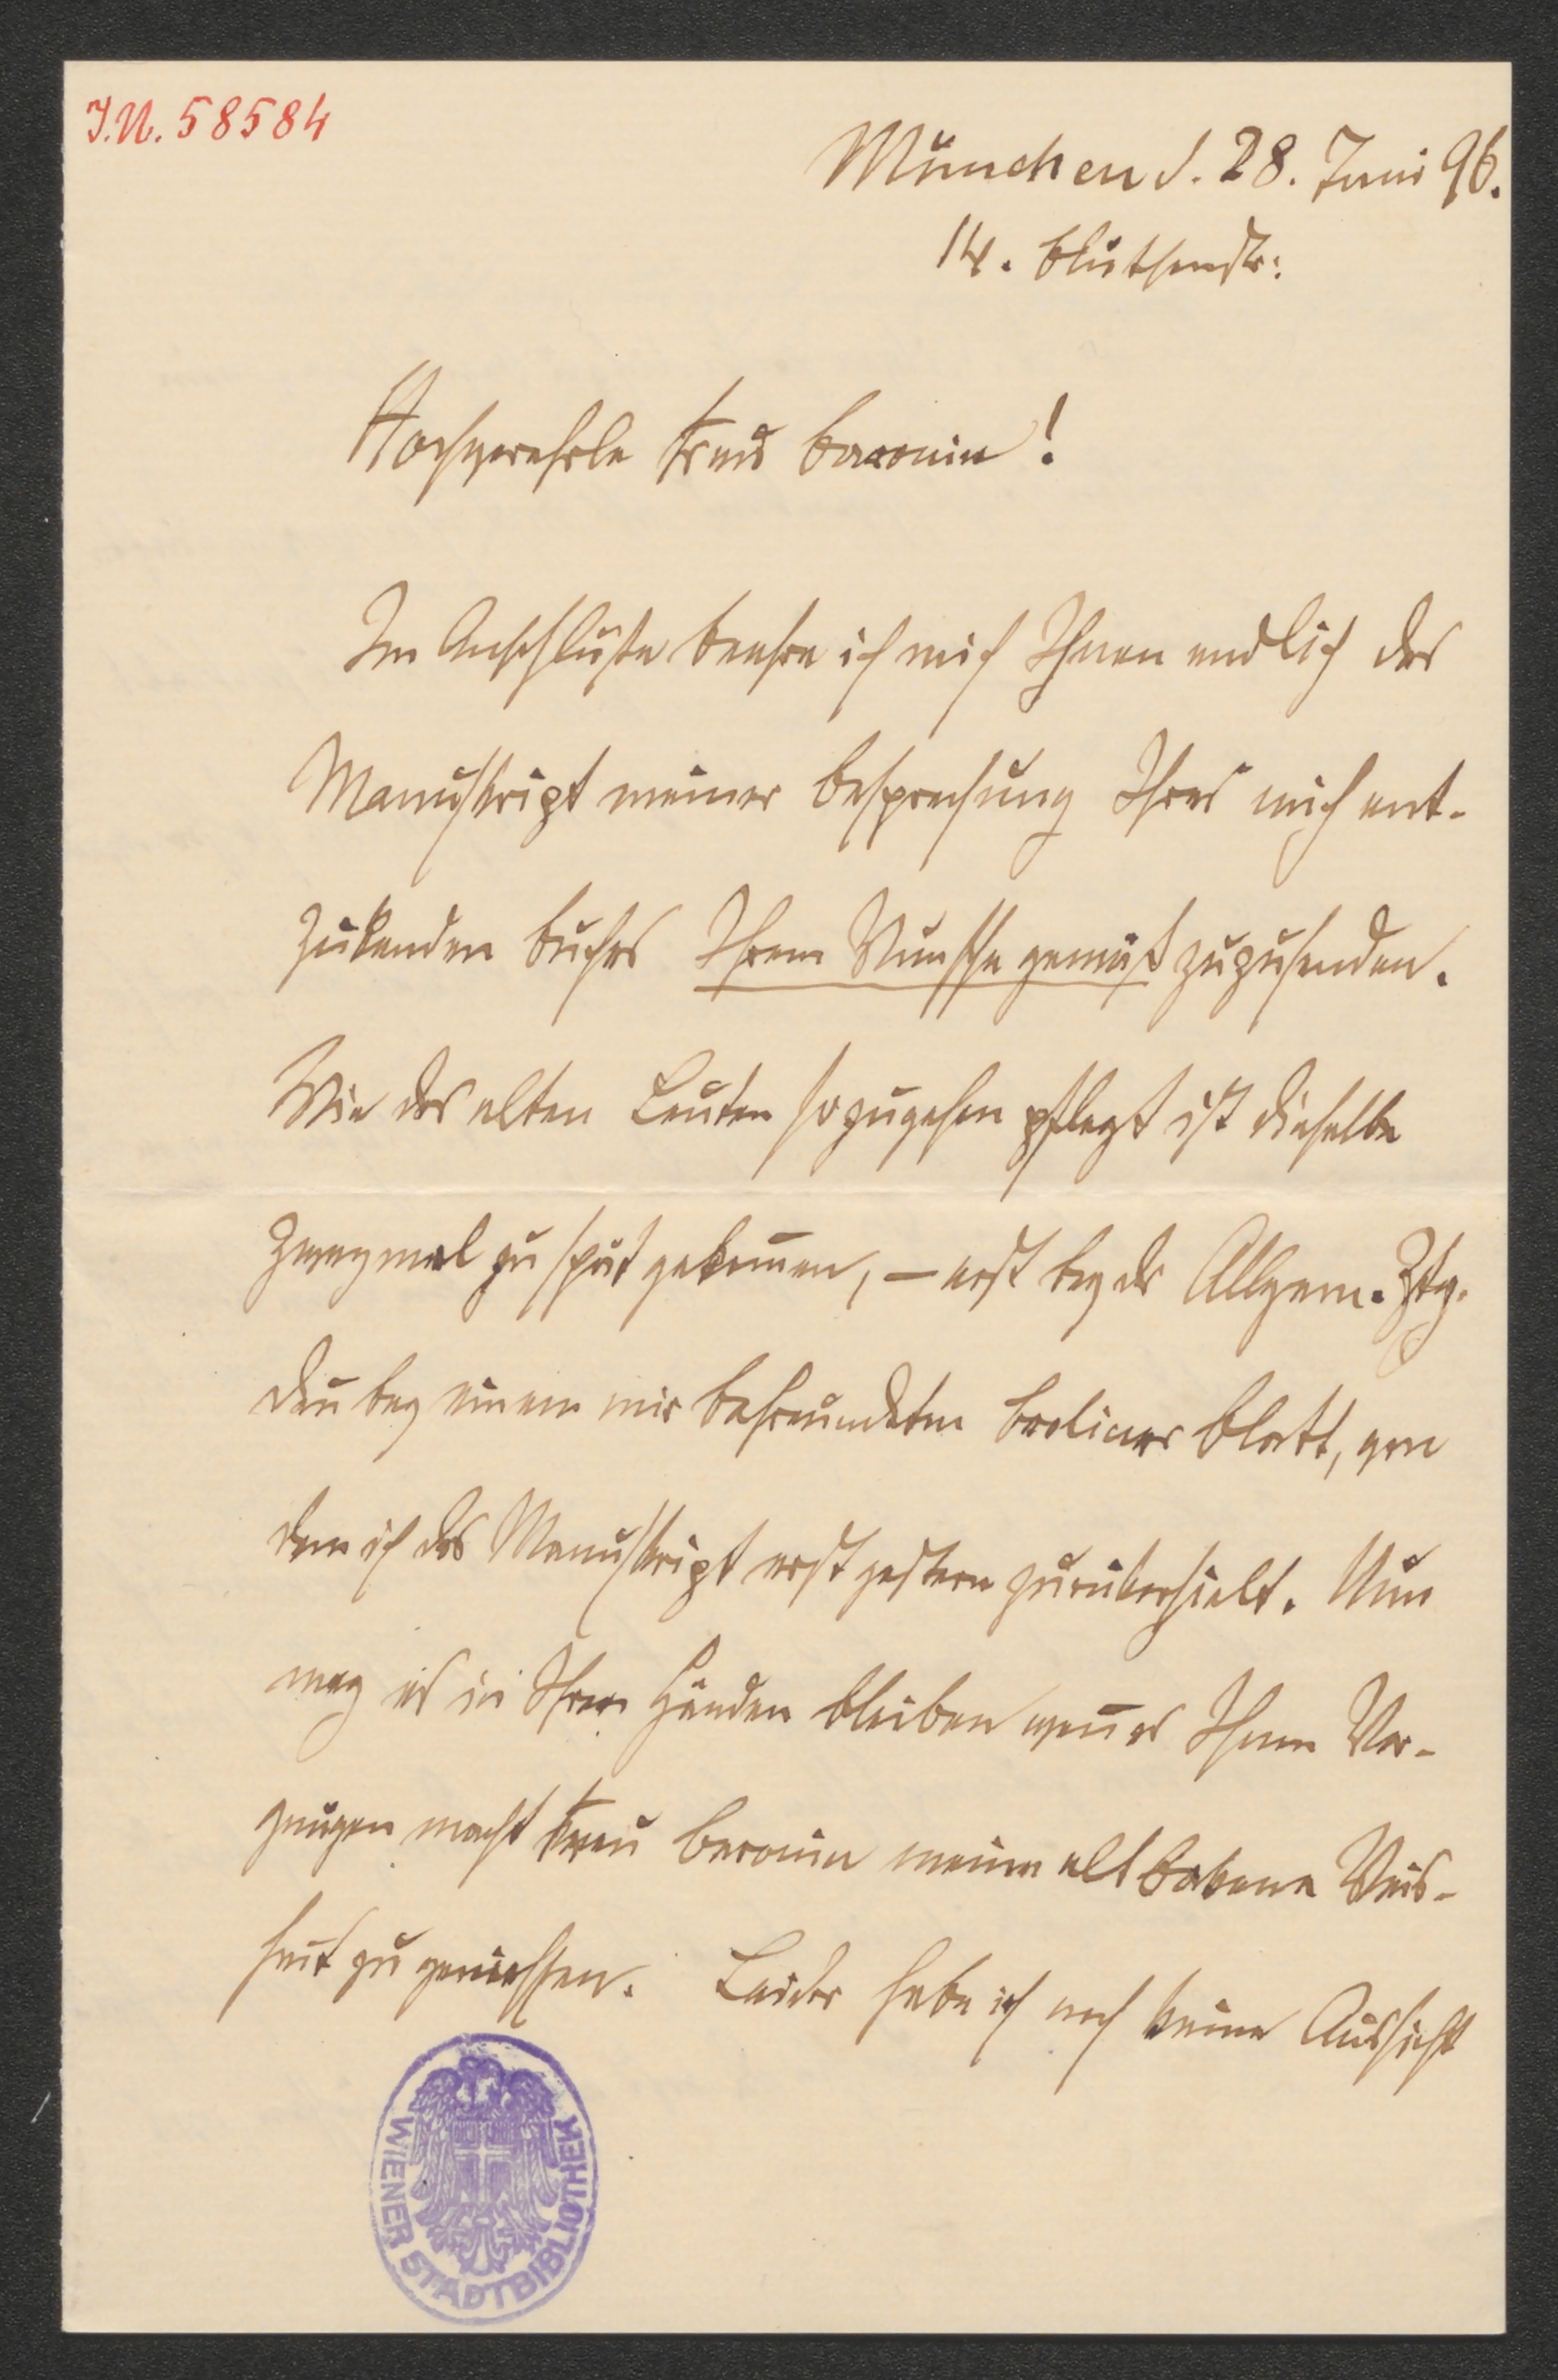 I.N. 58584
München d. 28. Juni 96.
14. Blüthenstr:
Hochverehrte Frau Baronin!
Im Anschlusse beehre ich mich Ihnen endlich das
Manuskript meiner Besprechung Ihres mich ent-
zükenden Buches Ihrem Wunsche gemäß zuzusenden.
Wie das alten Leuten so zugehen pflegt ist dieselbe
zweymal zu spät gekom̅en, – erst bey der Allgem. Ztg.
dan̅ bey einem mir befreundeten Berliner Blatt, von
dem ich das Manuskript erst gestern zurükerhielt. Nun
mag es in Ihren Händen bleiben wen̅ es Ihnen Ver-
gnügen macht Frau Baronin meine altbakene Weis-
heit zu geniessen. Leider habe ich noch keine Aussicht
WIENER STADTBIBLIOTHEK